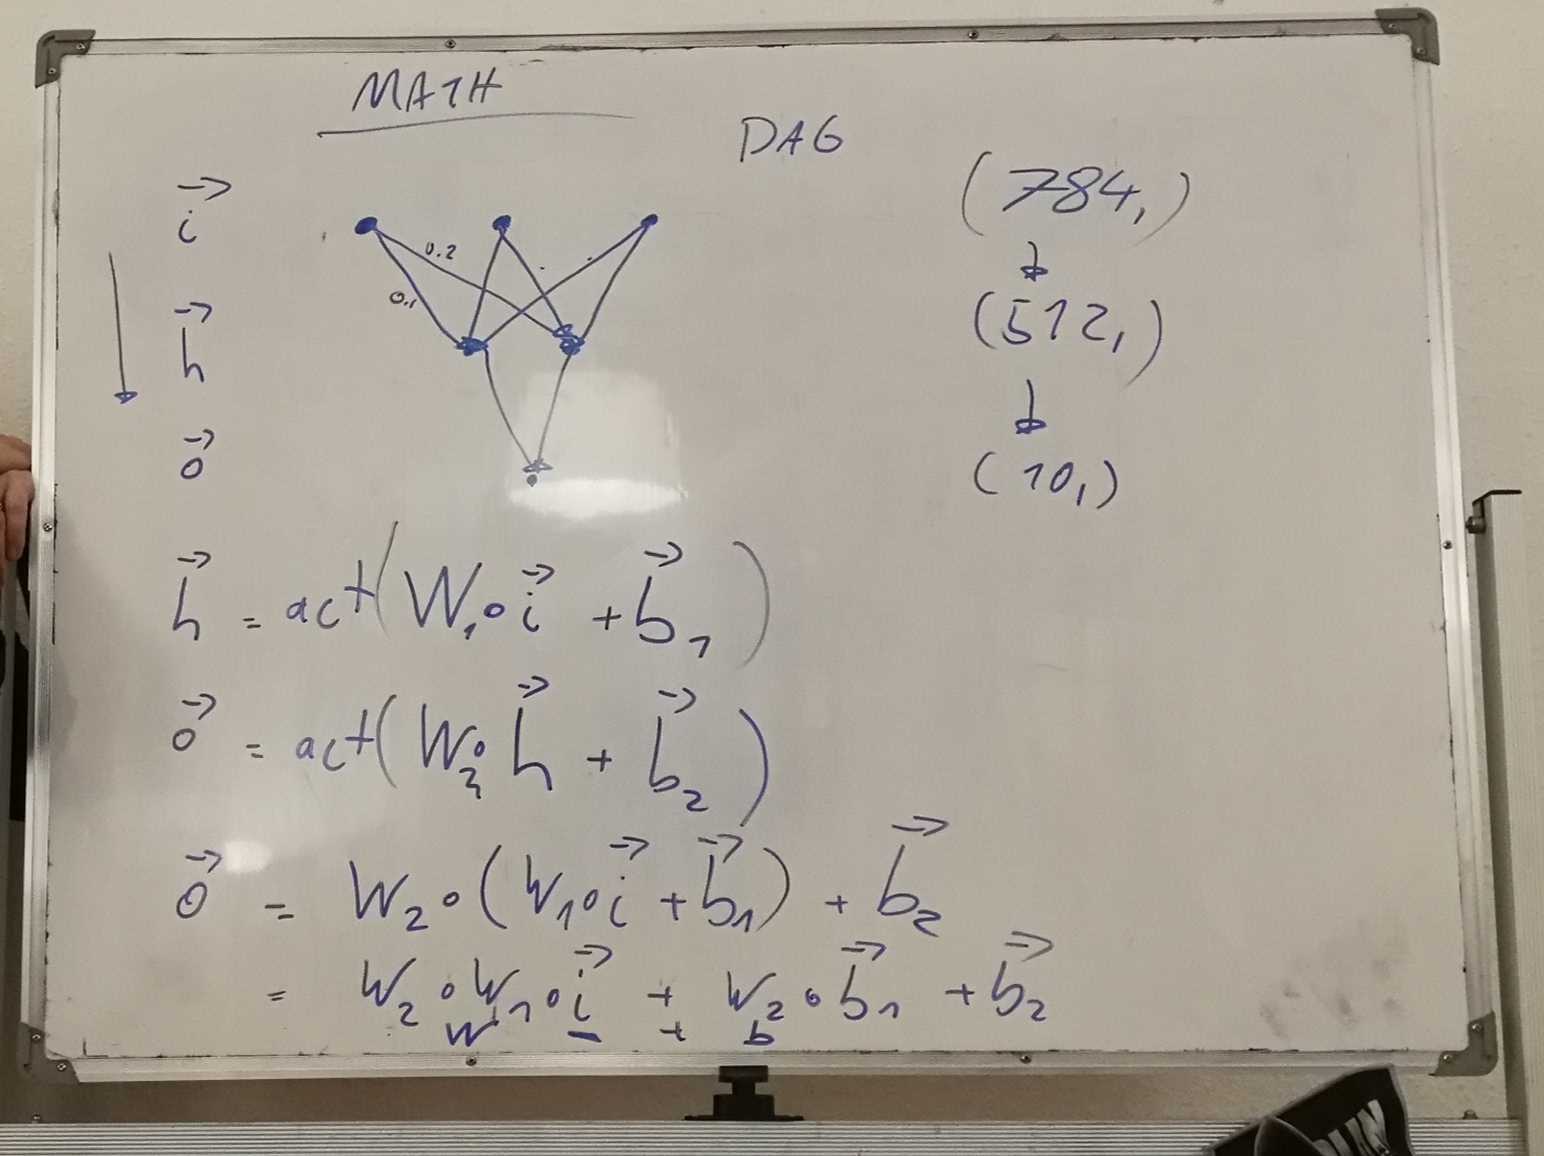 MATH
DAG
i⃗
(784,)
0.2
0.1
h⃗
(512,)
o⃗
(10,)
h⃗ = act(W₁∘i⃗ + b⃗₁)
o⃗ = act(W₂∘h⃗ + b⃗₂)
o⃗ = W₂∘(W₁∘i⃗ + b⃗₁) + b⃗₂
= W₂∘W₁∘i⃗ + W₂∘b⃗₁ + b⃗₂
W i + b